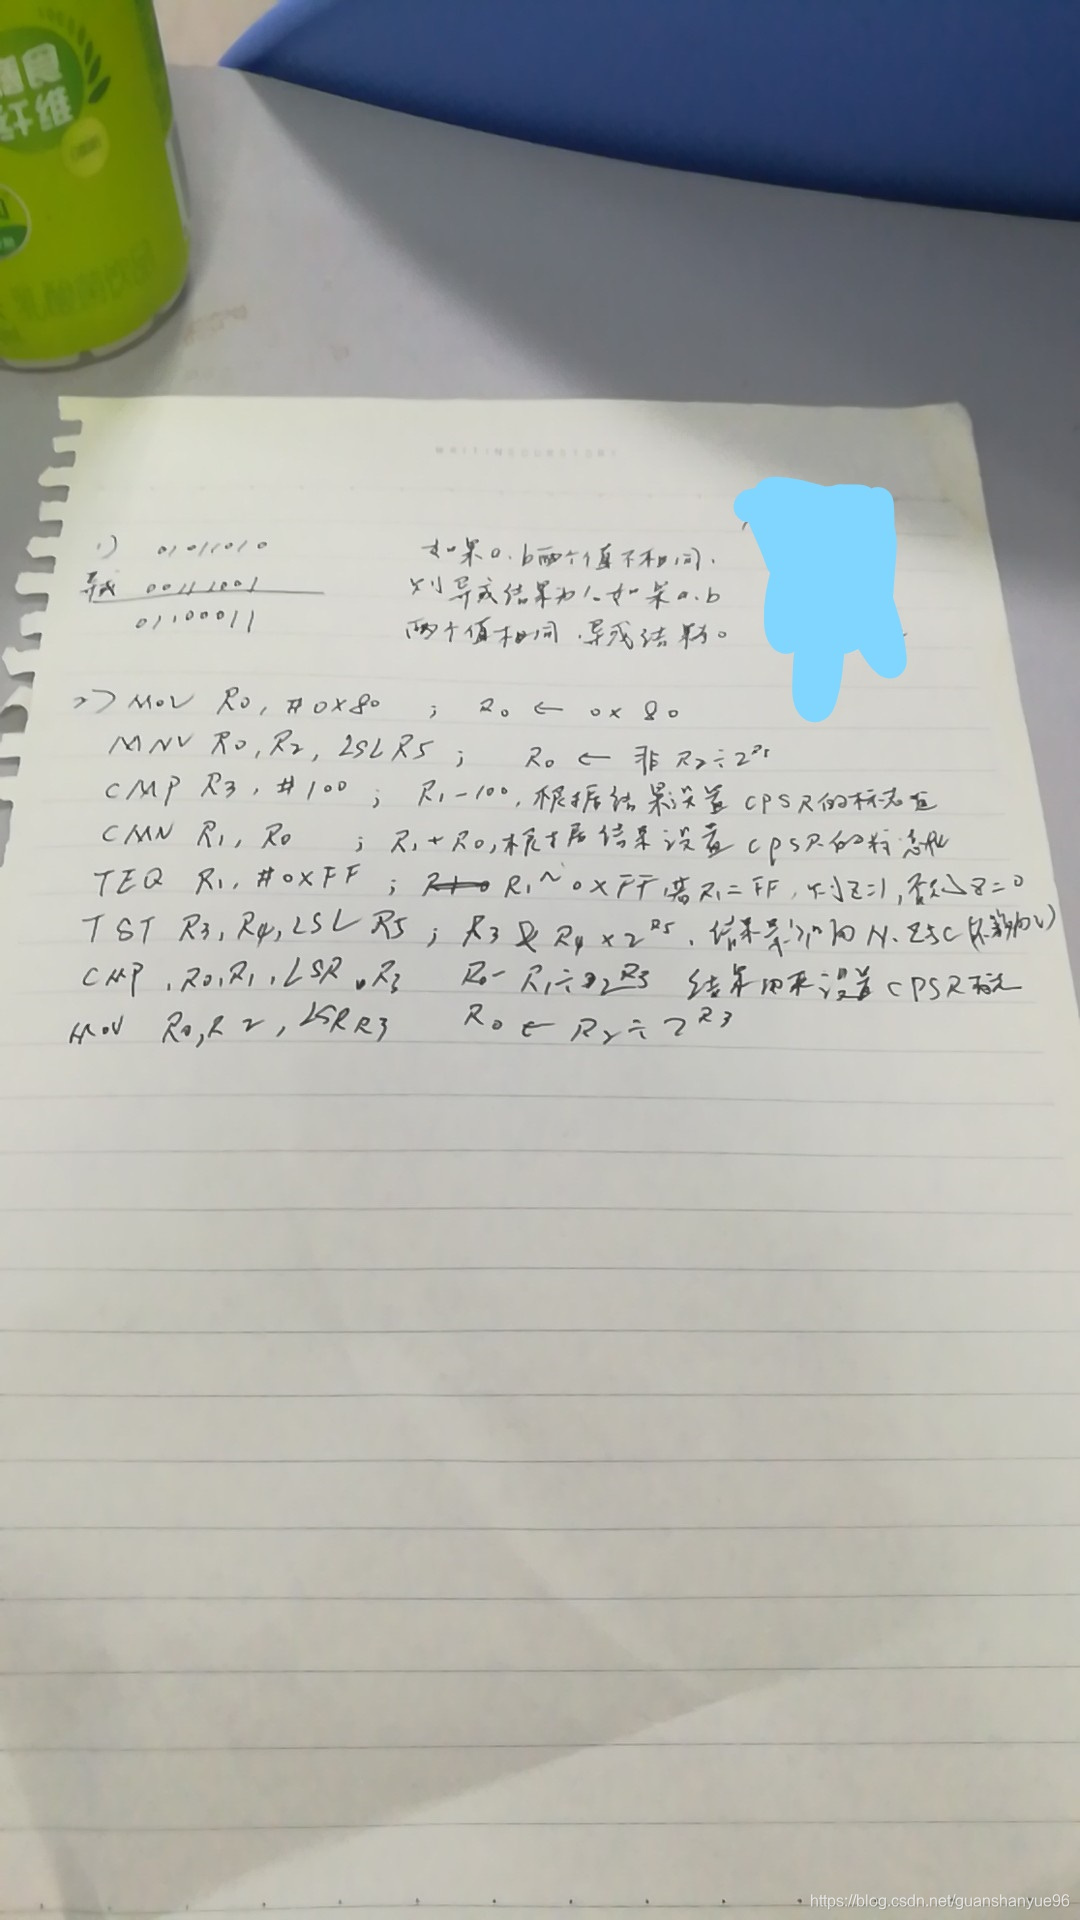 1) 01011010
异或 00111001
01100011
如果a.b两个值不相同.
则异或结果为1。如果a.b
两个值相同.异或结果0。
2) MOV R0, #0x80 ; R0 ← 0x80
MNV R0, R2, LSL R5 ; R0 ← 非 R2÷2^R5
CMP R3, #100 ; R1-100,根据结果设置CPSR的标志位
CMN R1, R0 ; R1+R0,根据结果设置CPSR的标志位
TEQ R1, #0xFF ; R1^0xFF 若R1=FF,则Z=1,否则Z=0
TST R3, R4, LSL R5 ; R3 & R4×2^R5.结果影响N.Z与C(不影响V)
CMP ,R0,R1,LSR R3 R0-R1÷2^R3 结果用来设置CPSR标志
MOV R0,R2,LSR R3 R0 ← R2÷2^R3
https://blog.csdn.net/guanshanyue96